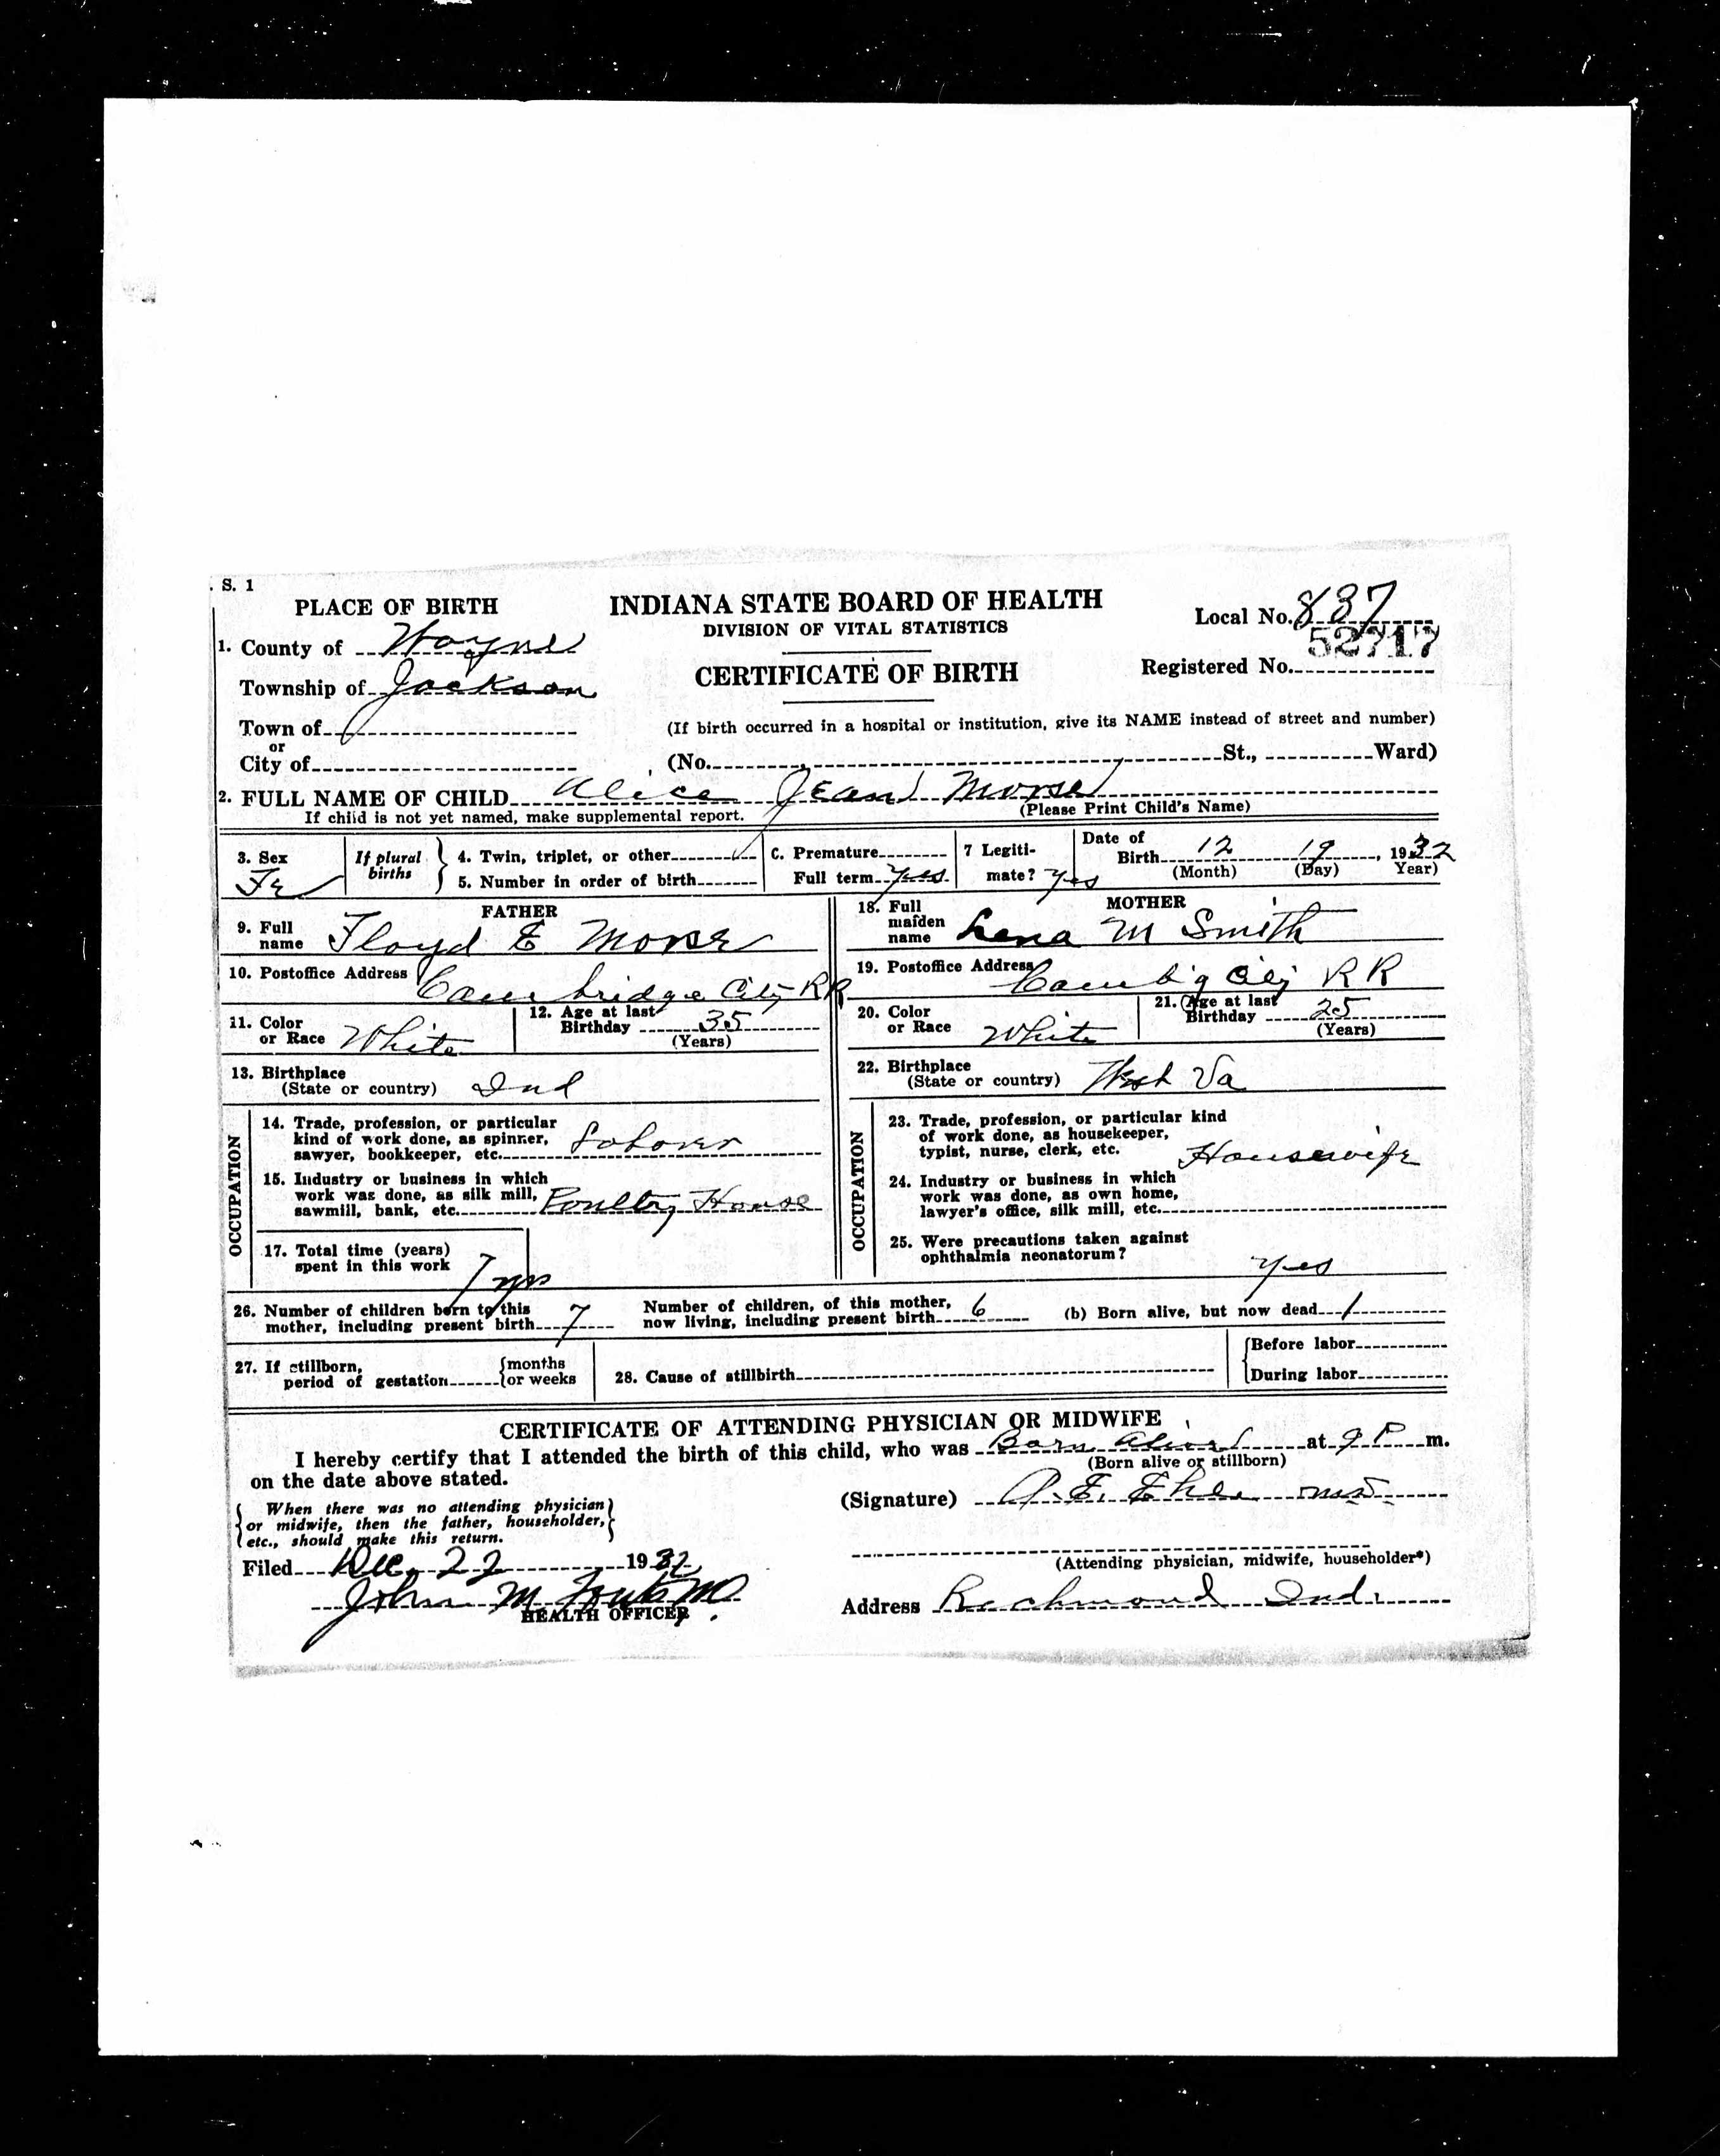 . S. 1
PLACE OF BIRTH
INDIANA STATE BOARD OF HEALTH
DIVISION OF VITAL STATISTICS
CERTIFICATE OF BIRTH
Local No. 837
52717
Registered No.
1. County of Wayne
Township of Jackson
Town of
or
City of
(If birth occurred in a hospital or institution, give its NAME instead of street and number)
(No. St., Ward)
2. FULL NAME OF CHILD Alice Jean Morse
If child is not yet named, make supplemental report.
(Please Print Child's Name)
3. Sex
Fe
If plural births
4. Twin, triplet, or other
5. Number in order of birth
C. Premature
Full term Yes
7 Legiti-
mate? Yes
Date of
Birth 12 19, 1932
(Month) (Day) Year)
FATHER
9. Full
name Floyd E Morse
10. Postoffice Address Cambridge City RR
11. Color
or Race White
12. Age at last
Birthday 35
(Years)
13. Birthplace
(State or country) Ind
OCCUPATION
14. Trade, profession, or particular
kind of work done, as spinner,
sawyer, bookkeeper, etc. Laborer
15. Industry or business in which
work was done, as silk mill,
sawmill, bank, etc. Poultry House
17. Total time (years)
spent in this work 7 yrs
MOTHER
18. Full
maiden
name Lena M Smith
19. Postoffice Address Camb'g City R R
20. Color
or Race White
21. Age at last
Birthday 25
(Years)
22. Birthplace
(State or country) West Va
OCCUPATION
23. Trade, profession, or particular kind
of work done, as housekeeper,
typist, nurse, clerk, etc. Housewife
24. Industry or business in which
work was done, as own home,
lawyer's office, silk mill, etc.
25. Were precautions taken against
ophthalmia neonatorum? Yes
26. Number of children born to this
mother, including present birth 7
Number of children, of this mother,
now living, including present birth 6
(b) Born alive, but now dead 1
27. If stillborn,
period of gestation
months
or weeks
28. Cause of stillbirth
Before labor
During labor
CERTIFICATE OF ATTENDING PHYSICIAN OR MIDWIFE
I hereby certify that I attended the birth of this child, who was Born alive at 9 P m.
(Born alive or stillborn)
on the date above stated.
When there was no attending physician
or midwife, then the father, householder,
etc., should make this return.
(Signature) E. MD
(Attending physician, midwife, householder*)
Filed Dec. 22 1932
John M. MD
HEALTH OFFICER
Address Richmond Ind.